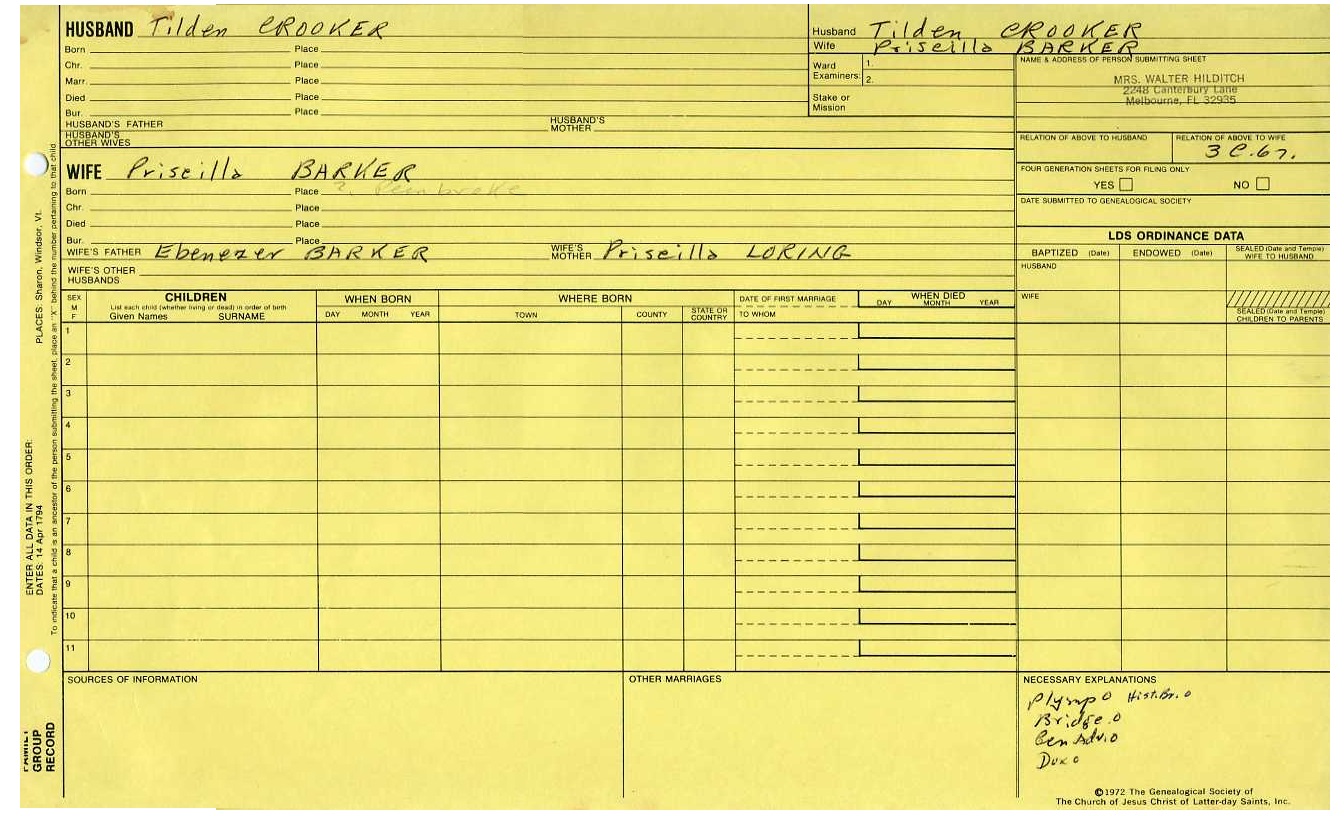 HUSBAND Tilden CROOKER
Born Place
Chr. Place
Marr. Place
Died Place
Bur. Place
HUSBAND'S FATHER HUSBAND'S MOTHER
HUSBAND'S OTHER WIVES
Husband Tilden CROOKER
Wife Priscilla BARKER
Ward Examiners: 1.
2.
Stake or Mission
NAME & ADDRESS OF PERSON SUBMITTING SHEET
MRS. WALTER HILDITCH
2248 Canterbury Lane
Melbourne, FL 32935
RELATION OF ABOVE TO HUSBAND RELATION OF ABOVE TO WIFE
3 C.6r.
FOUR GENERATION SHEETS FOR FILING ONLY
YES NO
DATE SUBMITTED TO GENEALOGICAL SOCIETY
WIFE Priscilla BARKER
Born Place ?. Pembroke
Chr. Place
Died Place
Bur. Place
WIFE'S FATHER Ebenezer BARKER WIFE'S MOTHER Priscilla LORING
WIFE'S OTHER HUSBANDS
LDS ORDINANCE DATA
BAPTIZED (Date) ENDOWED (Date) SEALED (Date and Temple) WIFE TO HUSBAND
HUSBAND
WIFE
SEALED (Date and Temple) CHILDREN TO PARENTS
SEX M F
CHILDREN
List each child (whether living or dead) in order of birth
Given Names SURNAME
WHEN BORN
DAY MONTH YEAR
WHERE BORN
TOWN COUNTY STATE OR COUNTRY
DATE OF FIRST MARRIAGE
TO WHOM
WHEN DIED
DAY MONTH YEAR
1
2
3
4
5
6
7
8
9
10
11
SOURCES OF INFORMATION
OTHER MARRIAGES
NECESSARY EXPLANATIONS
Plymp 0 Hist.Br. 0
Bridge. 0
Gen Adv. 0
Dux 0
©1972 The Genealogical Society of
The Church of Jesus Christ of Latter-day Saints, Inc.
PLACES: Sharon, Windsor, Vt.
ENTER ALL DATA IN THIS ORDER:
DATES: 14 Apr 1794
To indicate that a child is an ancestor of the person submitting the sheet, place an "X" behind the number pertaining to that child.
FAMILY GROUP RECORD